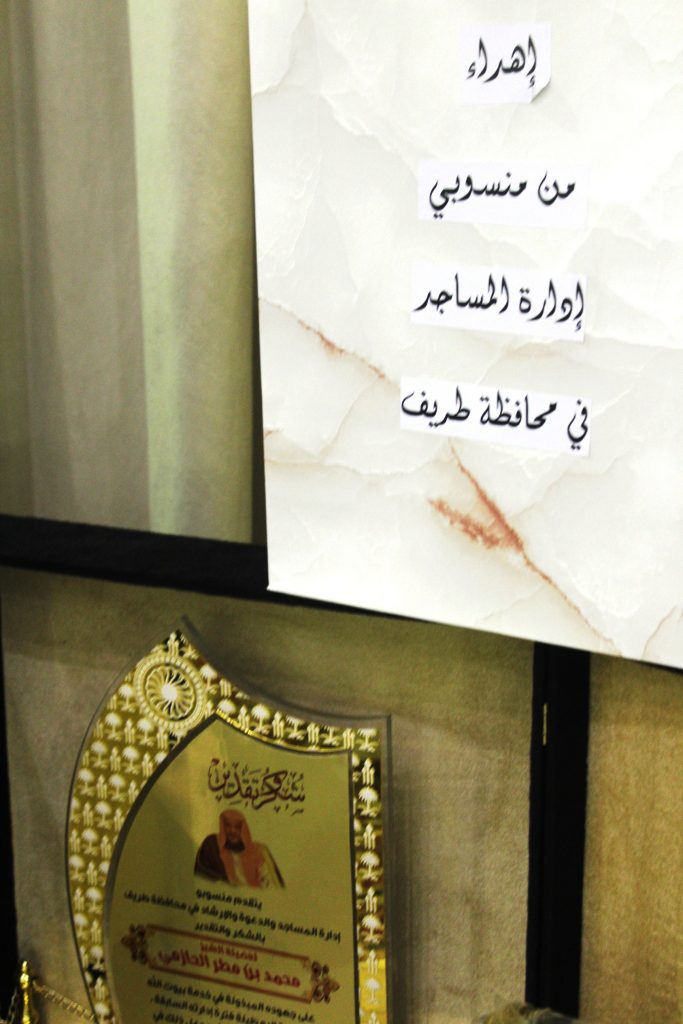 إهداء
من منسوبي
إدارة المساجد
في محافظة طريف
شكر وتقدير
يتقدم منسوبو
إدارة المساجد والدعوة والإرشاد في محافظة طريف
بالشكر والتقدير
لفضيلة الشيخ
محمد بن مطر الحازمي
على جهوده المبذولة في خدمة بيوت الله
فترة إدارته السابقة
ذلك في